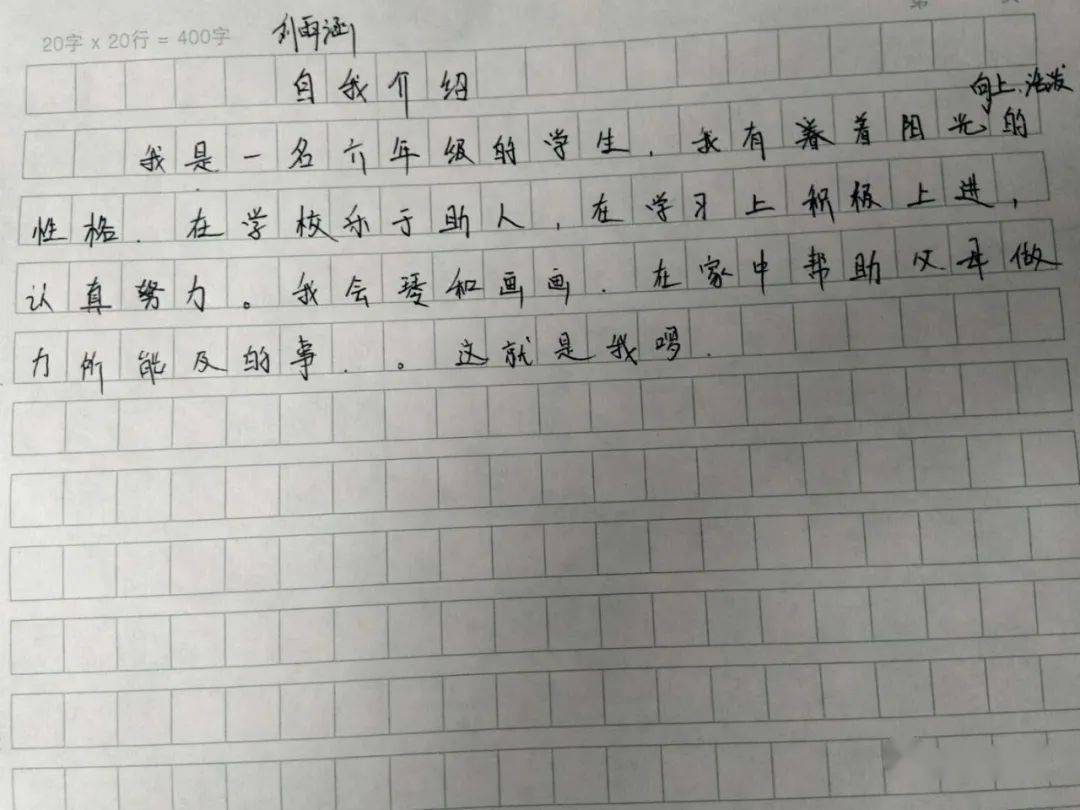 20字 x 20行 = 400字 刘雨涵
自我介绍
向上、活泼
我是一名六年级的学生，我有着着阳光的
性格．在学校乐于助人，在学习上积极上进，
认真努力。我会琴和画画．在家中帮助父母做
力所能及的事．。这就是我啰．